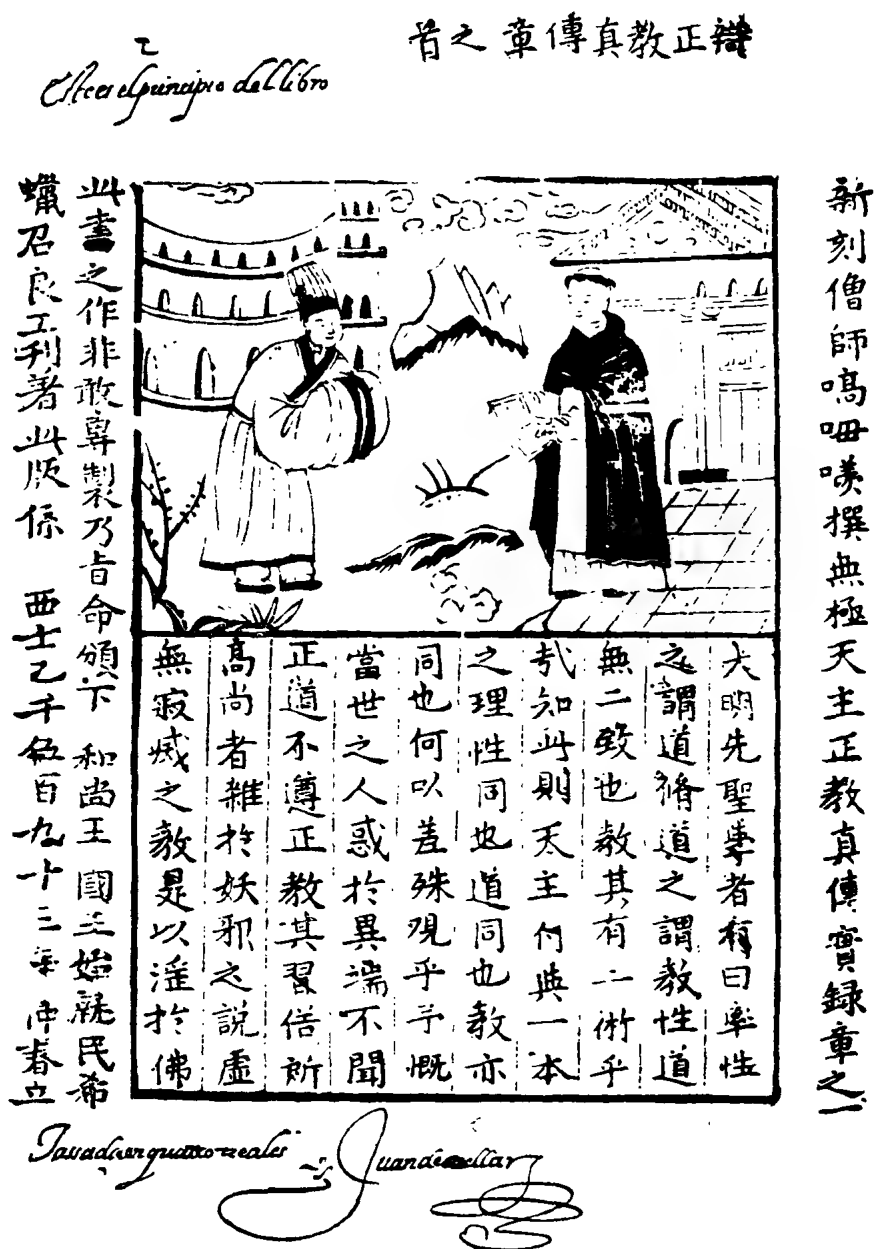 辯正教真傳章之首
Este es el principio del libro
新刻僧師嗃呣撰無極天主正教真傳實錄章之一
大明先聖學者有曰率性
之謂道脩道之謂教性道
無二致也教其有二術乎
哉知此則天主付與一本
之理性同也道同也教亦
同也何以差殊觀乎予慨
當世之人惑扵異端不聞
正道不遵正教其習俗所
高尚者雜扵妖邪之說虛
無寂滅之教是以滛扵佛
此書之作非敢專製乃旨命頒下 和尚王 國王始就民希
蠟召良工刊著此版係 西士乙千伍百九十三年 仲春立
Tasada en quatro reales
Juan de cuellar